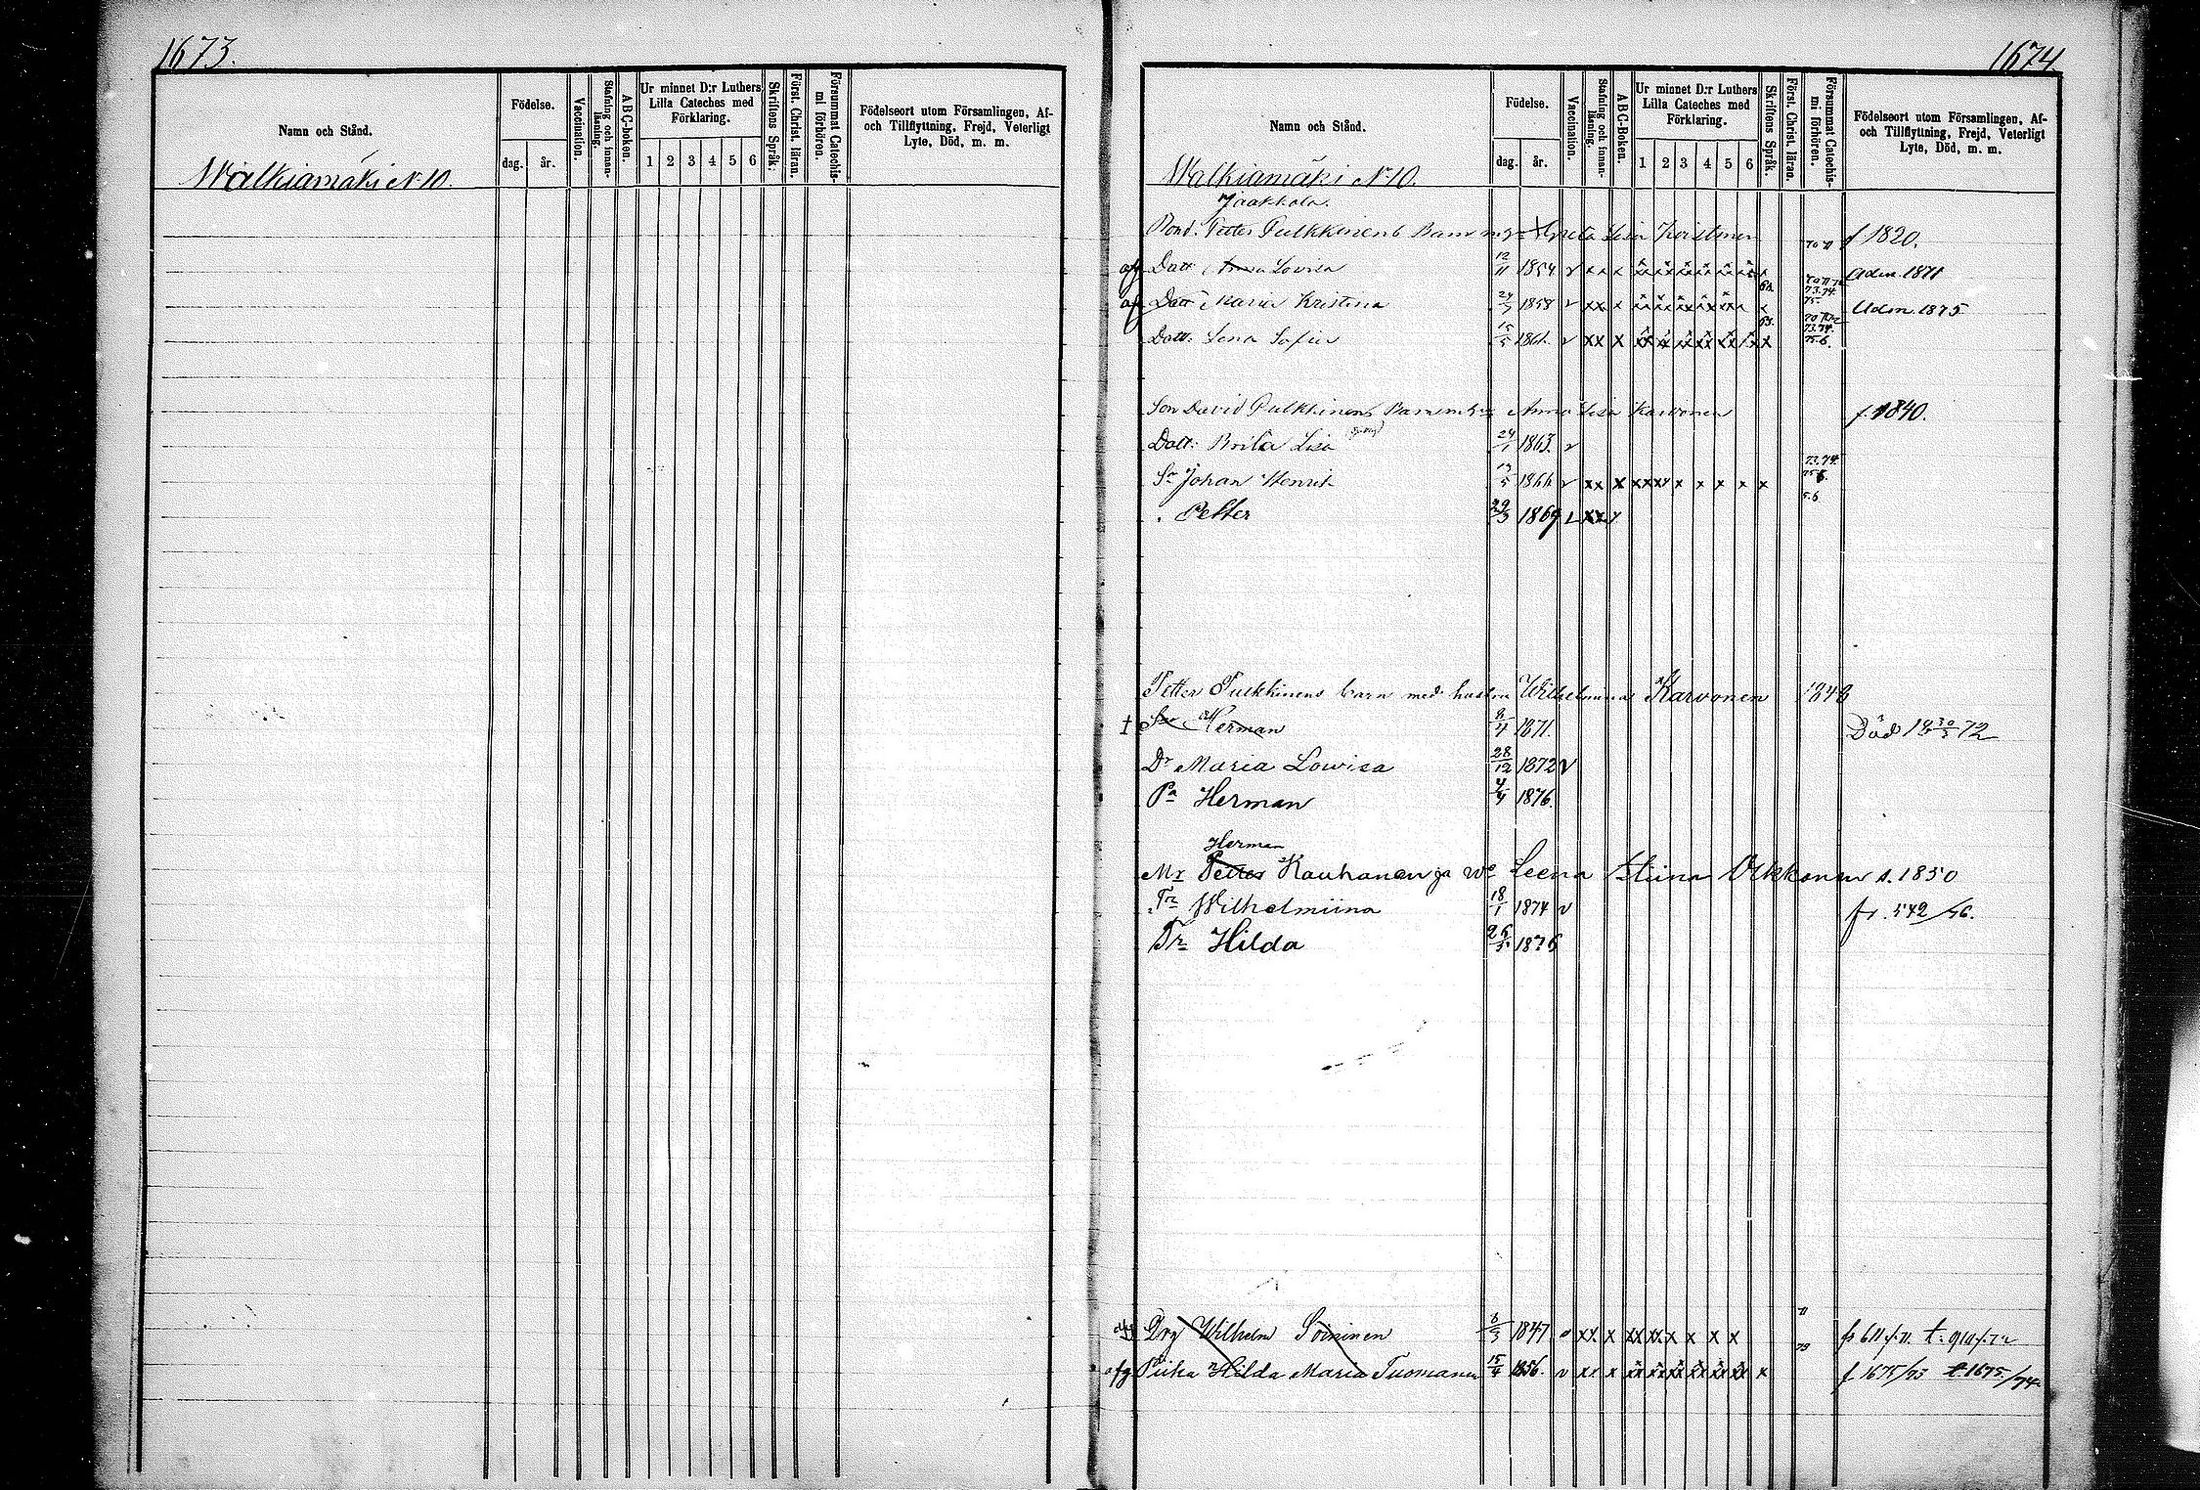 1673.
Namn och Stånd.
Födelse.
dag. år.
Vaccination.
Stafning och innan-läsning.
A B C-boken.
Ur minnet D:r Luthers Lilla Cateches med Förklaring.
1 2 3 4 5 6
Skriftens Språk.
Först. Christ. läran.
Försummat Catechis-mi förhören.
Födelseort utom Församlingen, Af- och Tillflyttning, Frejd, Veterligt Lyte, Död, m. m.
Walkiamäki N:10.
1674
Namn och Stånd.
Födelse.
dag. år.
Vaccination.
Stafning och innan-läsning.
A B C-Boken.
Ur minnet D:r Luthers Lilla Cateches med Förklaring.
1 2 3 4 5 6
Skriftens Språk.
Först. Christ. läran.
Försummat Catechis-mi förhören.
Födelseort utom Församlingen, Af- och Tillflyttning, Frejd, Veterligt Lyte, Död, m. m.
Walkiamäki N:10.
Jaakkola.
Bond. Petter Pulkkinens Barn Greta Lisa f 1820.
afg Dott Anna Lovisa 12/11 1854 v x x x Adm. 1871
Dott Maria Kristina 1858 v xx x Adm. 1875
Dott. Lena Sofia 15/5 1861. v xx x
Son David Pulkkinens Barn Anna Lisa Karvonen f. 1840.
Dott. Brita Lisa 24/1 1863. v
Sn Johan Henrik v xx x xx xx x x x x x 73.74.
Petter 29/3 1869
Petter Pulkkinens barn med hustru Wilhelmina Karvonen 1848
† Son Herman 8/4 1871. Död 18 30/3 72
Dr Maria Lowisa 28/12 1872 v
Pa Herman 1876.
Herman
Mr Petter Kauhanen ja Wo Leena Stiina Okkonen s. 1850
Tr Wilhelmiina 18/1 1874 v fr. 542/76.
Tr Hilda 1876
Drg Wilhelm Soininen 8/3 1847 xx x xx xx x x x x fr 611/71. t. 910/72
afg Piika Hilda Maria Tuomanen 15/4 1856. v xx x f. 1675/73 t. 1675/74